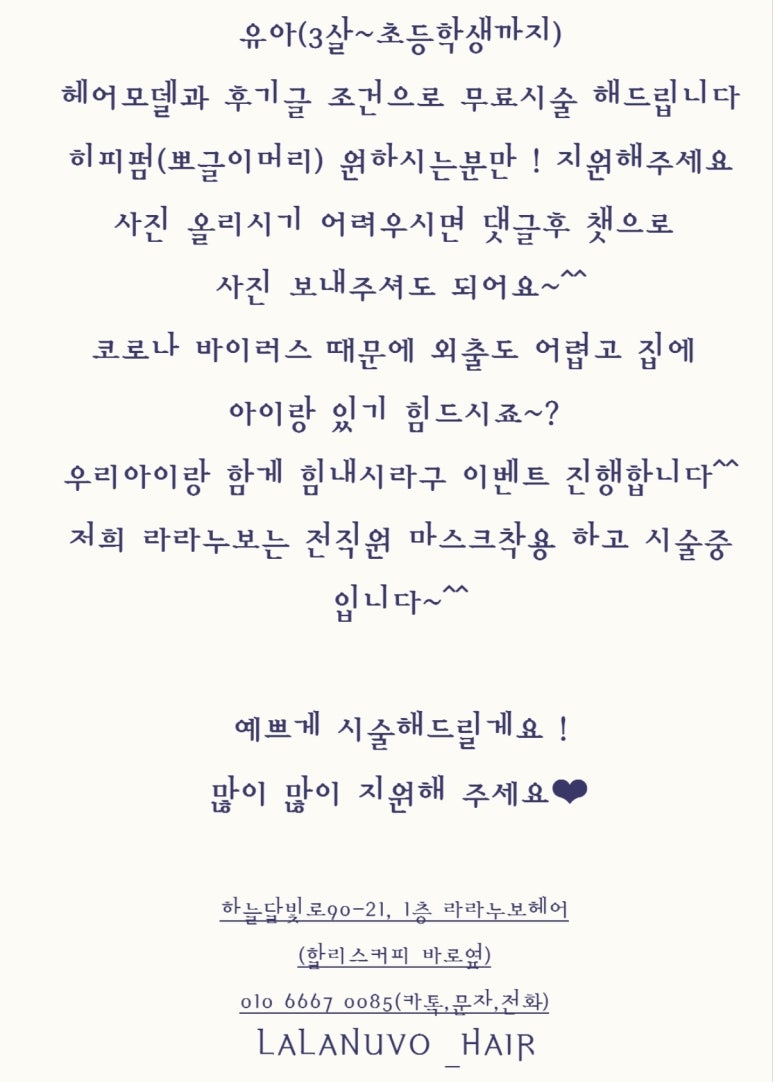 유아(3살~초등학생까지)
헤어모델과 후기글 조건으로 무료시술 해드립니다
히피펌(뽀글이머리) 원하시는분만 ! 지원해주세요
사진 올리시기 어려우시면 댓글후 챗으로
사진 보내주셔도 되어요~^^
코로나 바이러스 때문에 외출도 어렵고 집에
아이랑 있기 힘드시죠~?
우리아이랑 함게 힘내시라구 이벤트 진행합니다^^
저희 라라누보는 전직원 마스크착용 하고 시술중
입니다~^^
예쁘게 시술해드릴게요 !
많이 많이 지원해 주세요❤
하늘달빛로90-21, 1층 라라누보헤어
(할리스커피 바로옆)
010 6667 0085(카톡,문자,전화)
LALANUVO _HAIR